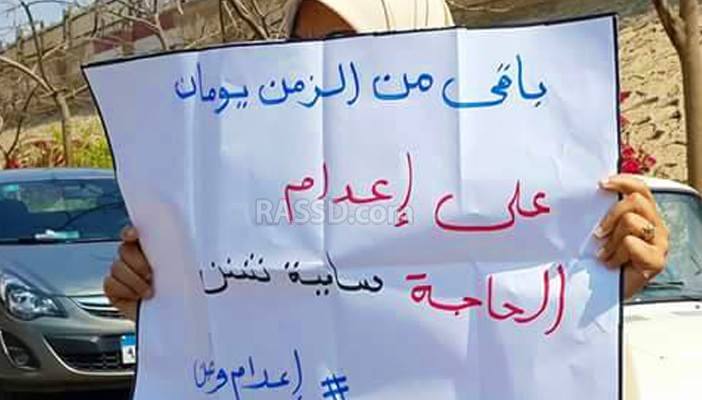 باقى من الزمن يومان
على إعدام
RASSD.com
الحاجة سابية شنن
# إعدام وطن